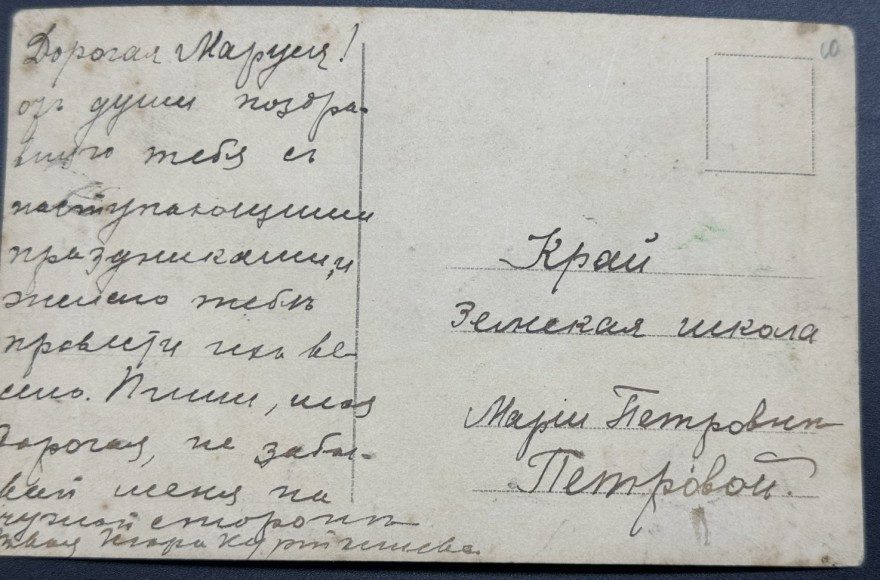 Дорогая Маруся!
отъ души поздра-
вляю тебя съ
наступающими
праздниками, и
желаю тебѣ
провести ихъ ве-
село. Пиши, моя
дорогая, не забы-
вай меня на
чужой сторонѣ
твоя
Край
Земская школа
Маріи Петровнѣ
Петровой.